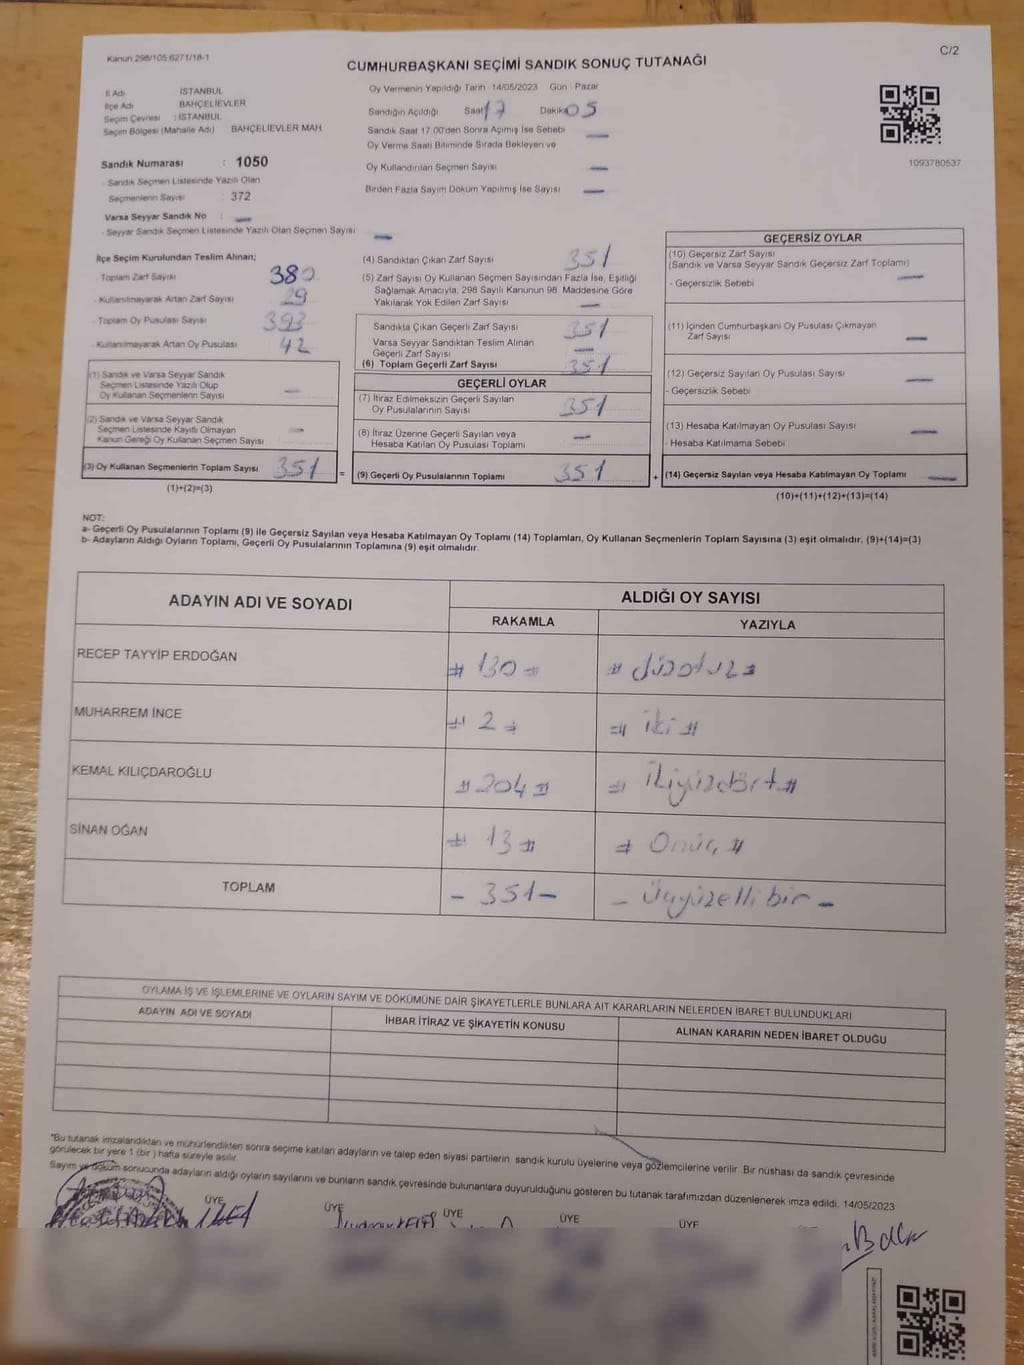 Kanun:298/105:6271/18-1
C/2
CUMHURBAŞKANI SEÇİMİ SANDIK SONUÇ TUTANAĞI
İl Adı İSTANBUL
İlçe Adı BAHÇELİEVLER
Seçim Çevresi : İSTANBUL
Seçim Bölgesi (Mahalle Adı) BAHÇELİEVLER MAH
Sandık Numarası : 1050
- Sandık Seçmen Listesinde Yazılı Olan
Seçmenlerin Sayısı : 372
Varsa Seyyar Sandık No : —
- Seyyar Sandık Seçmen Listesinde Yazılı Olan Seçmen Sayısı —
Oy Vermenin Yapıldığı Tarih 14/05/2023 Gün Pazar
Sandığın Açıldığı Saat 17 Dakika 05
Sandık Saat 17.00'den Sonra Açımış İse Sebebi —
Oy Verme Saati Bitiminde Sırada Bekleyen ve
Oy Kullandırılan Seçmen Sayısı —
Birden Fazla Sayım Döküm Yapılmış İse Sayısı —
1093780537
İlçe Seçim Kurulundan Teslim Alınan;
- Toplam Zarf Sayısı 380
- Kullanılmayarak Artan Zarf Sayısı 29
- Toplam Oy Pusulası Sayısı 393
- Kullanılmayarak Artan Oy Pusulası 42
(1) Sandık ve Varsa Seyyar Sandık
Seçmen Listesinde Yazılı Olup
Oy Kullanan Seçmenlerin Sayısı —
(2) Sandık ve Varsa Seyyar Sandık
Seçmen Listesinde Kayıtlı Olmayan
Kanun Gereği Oy Kullanan Seçmen Sayısı —
(3) Oy Kullanan Seçmenlerin Toplam Sayısı 351 =
(1)+(2)=(3)
(4) Sandıktan Çıkan Zarf Sayısı 351
(5) Zarf Sayısı Oy Kullanan Seçmen Sayısından Fazla İse, Eşitliği
Sağlamak Amacıyla, 298 Sayılı Kanunun 98. Maddesine Göre
Yakılarak Yok Edilen Zarf Sayısı —
Sandıkta Çıkan Geçerli Zarf Sayısı 351
Varsa Seyyar Sandıktan Teslim Alınan
Geçerli Zarf Sayısı —
(6) Toplam Geçerli Zarf Sayısı 351
GEÇERLİ OYLAR
(7) İtiraz Edilmeksizin Geçerli Sayılan
Oy Pusulalarının Sayısı 351
(8) İtiraz Üzerine Geçerli Sayılan veya
Hesaba Katılan Oy Pusulası Toplamı —
(9) Geçerli Oy Pusulalarının Toplamı 351 +
GEÇERSİZ OYLAR
(10) Geçersiz Zarf Sayısı
(Sandık ve Varsa Seyyar Sandık Geçersiz Zarf Toplamı)
- Geçersizlik Sebebi —
(11) İçinden Cumhurbaşkanı Oy Pusulası Çıkmayan
Zarf Sayısı —
(12) Geçersiz Sayılan Oy Pusulası Sayısı —
- Geçersizlik Sebebi
(13) Hesaba Katılmayan Oy Pusulası Sayısı —
- Hesaba Katılmama Sebebi
(14) Geçersiz Sayılan veya Hesaba Katılmayan Oy Toplamı —
(10)+(11)+(12)+(13)=(14)
NOT:
a- Geçerli Oy Pusulalarının Toplamı (9) ile Geçersiz Sayılan veya Hesaba Katılmayan Oy Toplamı (14) Toplamları, Oy Kullanan Seçmenlerin Toplam Sayısına (3) eşit olmalıdır. (9)+(14)=(3)
b- Adayların Aldığı Oyların Toplamı, Geçerli Oy Pusulalarının Toplamına (9) eşit olmalıdır.
ADAYIN ADI VE SOYADI
ALDIĞI OY SAYISI
RAKAMLA YAZIYLA
RECEP TAYYİP ERDOĞAN # 130 # # yüzotuz #
MUHARREM İNCE # 2 # # iki #
KEMAL KILIÇDAROĞLU # 204 # # ikiyüzdört #
SİNAN OĞAN # 13 # # Onüç #
TOPLAM - 351 - - Üçyüzellibir -
OYLAMA İŞ VE İŞLEMLERİNE VE OYLARIN SAYIM VE DÖKÜMÜNE DAİR ŞİKAYETLERLE BUNLARA AİT KARARLARIN NELERDEN İBARET BULUNDUKLARI
ADAYIN ADI VE SOYADI İHBAR İTİRAZ VE ŞİKAYETİN KONUSU ALINAN KARARIN NEDEN İBARET OLDUĞU
*Bu tutanak imzalandıktan ve mühürlendikten sonra seçime katılan adayların ve talep eden siyasi partilerin sandık kurulu üyelerine veya gözlemcilerine verilir. Bir nüshası da sandık çevresinde
görülecek bir yere 1 (bir) hafta süreyle asılır.
Sayım ve döküm sonucunda adayların aldığı oyların sayılarını ve bunların sandık çevresinde bulunanlara duyurulduğunu gösteren bu tutanak tarafımızdan düzenlenerek imza edildi. 14/05/2023
ÜYE ÜYE ÜYE ÜYE ÜYE